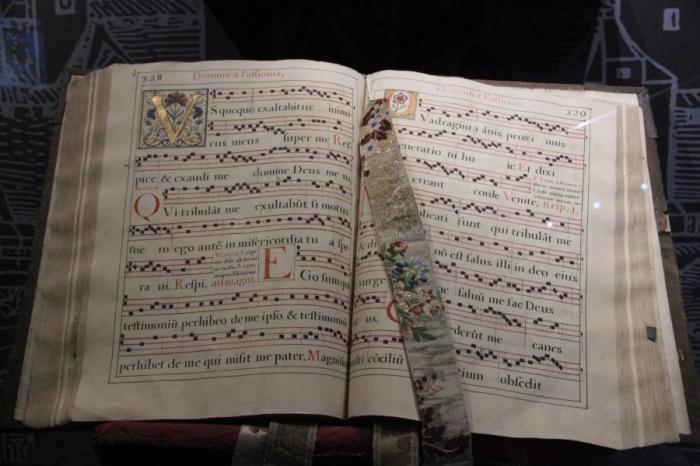 328
Dominica Passionis,
V
Squequo exaltabitur inimi
cus meus super me Res
pice & exaudi me domine Deus me us
Q Vi tribulāt me exultabūt si motus
fue ro ego autē in misericordia tu a spe
Versus, Eripe
me
E
ra ui, Respi, ad magni.
Go sum qui
testimoniū perhibeo de me ipso & testimoniū
perhibet de me qui misit me pater, Magnific
Dominica Passionis,
329
Q
Vadraginta ānis proxi mus
neratio ni hu ic Et dixi
errant corde Venite, Resp. 1.
plicati sunt qui tribulāt me
nō est salus illi in deo eius
me saluū me fac Deus
us,
derūt me canes
multi cōciliū
tium obsedit